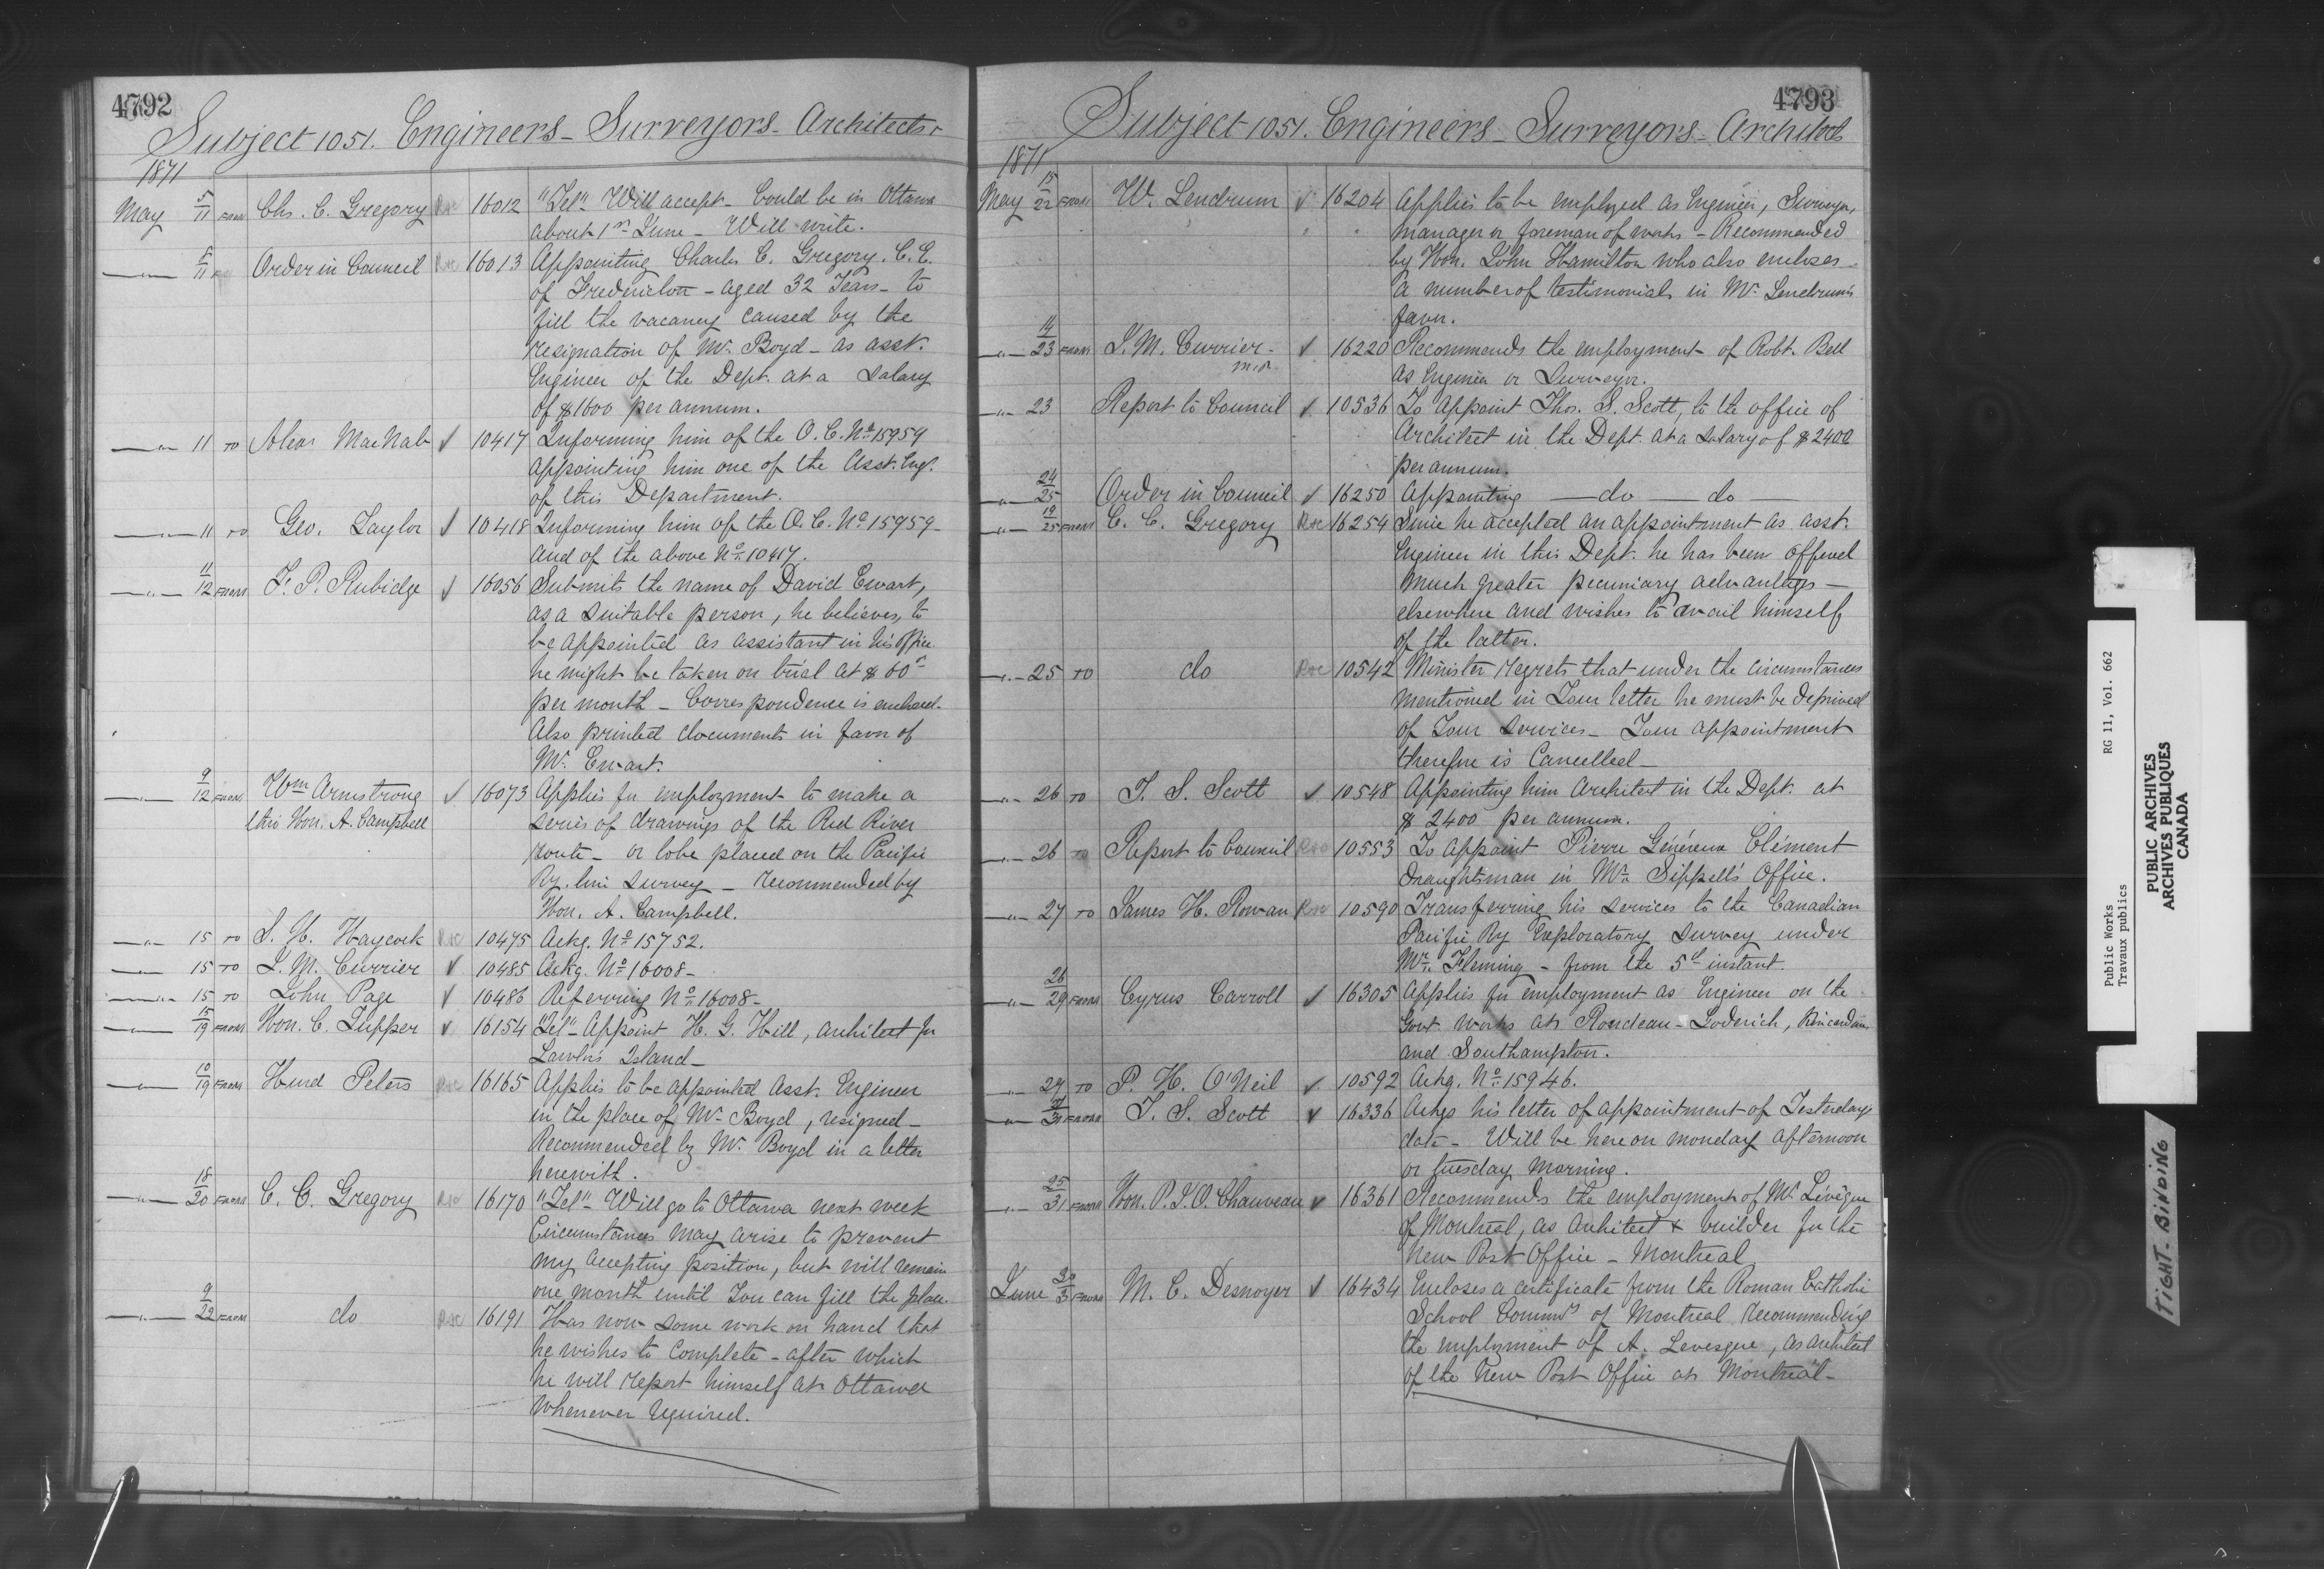 4792
Subject 1051. Engineers - Surveyors - Architects
1871
May 5/11 FROM Chs. C. Gregory Rec 16012 "Tel" Will accept - Could be in Ottawa
about 1st June - Will write.
" 11 Order in Council Rec 16013 Appointing Charles C. Gregory. C.E.
of Fredericton - aged 32 Years - to
fill the vacancy caused by the
resignation of Mr. Boyd - as asst.
Engineer of the Dept. at a Salary
of $1600 per annum.
" 11 TO Alexr MacNab ✓ 10417 Informing him of the O.C. No 15959
appointing him one of the Asst. Engr.
of this Department.
" 11 TO Geo. Taylor ✓ 10418 Informing him of the O.C. No 15959 -
and of the above No 10417.
" 11/12 FROM F. P. Rubidge ✓ 16056 Submits the name of David Ewart,
as a suitable person, he believes, to
be appointed as assistant in his office
he might be taken on trial at $60
per month - Correspondence is enclosed.
Also printed documents in favor of
Mr. Ewart.
" 9/12 FROM Wm Armstrong ✓ 16073 Applies for employment to make a
thro Hon. A. Campbell series of drawings of the Red River
route - or to be placed on the Pacific
Ry. line survey - recommended by
Hon. A. Campbell.
" 15 TO S. H. Haycock Rec 10475 Ackg. No 15752.
" 15 TO J. M. Currier ✓ 10485 Ackg. No 16008 -
" 15 TO John Page ✓ 10486 Referring No 16008 -
" 15/19 FROM Hon. C. Tupper ✓ 16154 "Tel" - Appoint H. G. Hill, architect for
Lawlor's Island -
" 10/19 FROM Hurd Peters Rec 16165 Applies to be appointed Asst. Engineer
in the place of Mr. Boyd, resigned -
Recommended by Mr. Boyd in a letter
herewith.
" 18/20 FROM C. C. Gregory Rec 16170 "Tel" - Will go to Ottawa next week
Circumstances may arise to prevent
my accepting position, but will remain
one month until You can fill the place.
" 9/22 FROM do Rec 16191 Has now some work on hand that
he wishes to complete - after which
he will report himself at Ottawa
whenever required.
4793
Subject 1051. Engineers - Surveyors - Architects
1871
May 15/22 FROM W. Lendrum ✓ 16204 Applies to be employed as Engineer, Surveyor,
manager or foreman of works - Recommended
by Hon. John Hamilton who also encloses
a number of testimonials in Mr. Lendrum's
favor.
" 14/23 FROM J. M. Currier - ✓ 16220 Recommends the employment of Robt. Bell
M.P. as Engineer or Surveyor.
" 23 Report to Council ✓ 10536 To appoint Thos. S. Scott, to the office of
Architect in the Dept. at a salary of $2400
per annum.
" 24/25 Order in Council ✓ 16250 Appointing — do — do —
" 19/25 FROM C. C. Gregory Rec 16254 Since he accepted an appointment as asst.
Engineer in this Dept. he has been offered
much greater pecuniary advantages -
elsewhere and wishes to avail himself
of the latter.
" 25 TO do Rec 10542 Minister regrets that under the circumstances
mentioned in Your letter he must be deprived
of Your services - Your appointment
therefore is Cancelled -
" 26 TO T. S. Scott ✓ 10548 Appointing him Architect in the Dept. at
$2400 per annum.
" 26 TO Report to Council Rec 10553 To appoint Pierre Généreux Clément
Draughtsman in Mr. Sippell's Office.
" 27 TO James H. Rowan Rec 10590 Transferring his services to the Canadian
Pacific Ry Exploratory Survey under
Mr. Fleming - from the 5th instant.
" 26/29 FROM Cyrus Carroll ✓ 16305 Applies for employment as Engineer on the
Govt. works at Rondeau - Goderich, Kincardine
and Southampton.
" 27 TO P. H. O'Neil ✓ 10592 Ackg. No 15946.
" 31 FROM T. S. Scott ✓ 16336 Ackgs his letter of appointment of Yesterday's
date - Will be here on monday afternoon
or tuesday morning.
" 25/31 FROM Hon. P. J. O. Chauveau ✓ 16361 Recommends the employment of Mr. Lévêque
of Montreal, as architect & builder for the
New Post Office - Montreal
June 30/3 FROM M. C. Desnoyer ✓ 16434 Encloses a certificate from the Roman Catholic
School Commrs of Montreal recommending
the employment of A. Levesque, as architect
of the New Post Office at Montreal -
Public Works RG 11, Vol. 662
Travaux publics
PUBLIC ARCHIVES
ARCHIVES PUBLIQUES
CANADA
TIGHT. BINDING